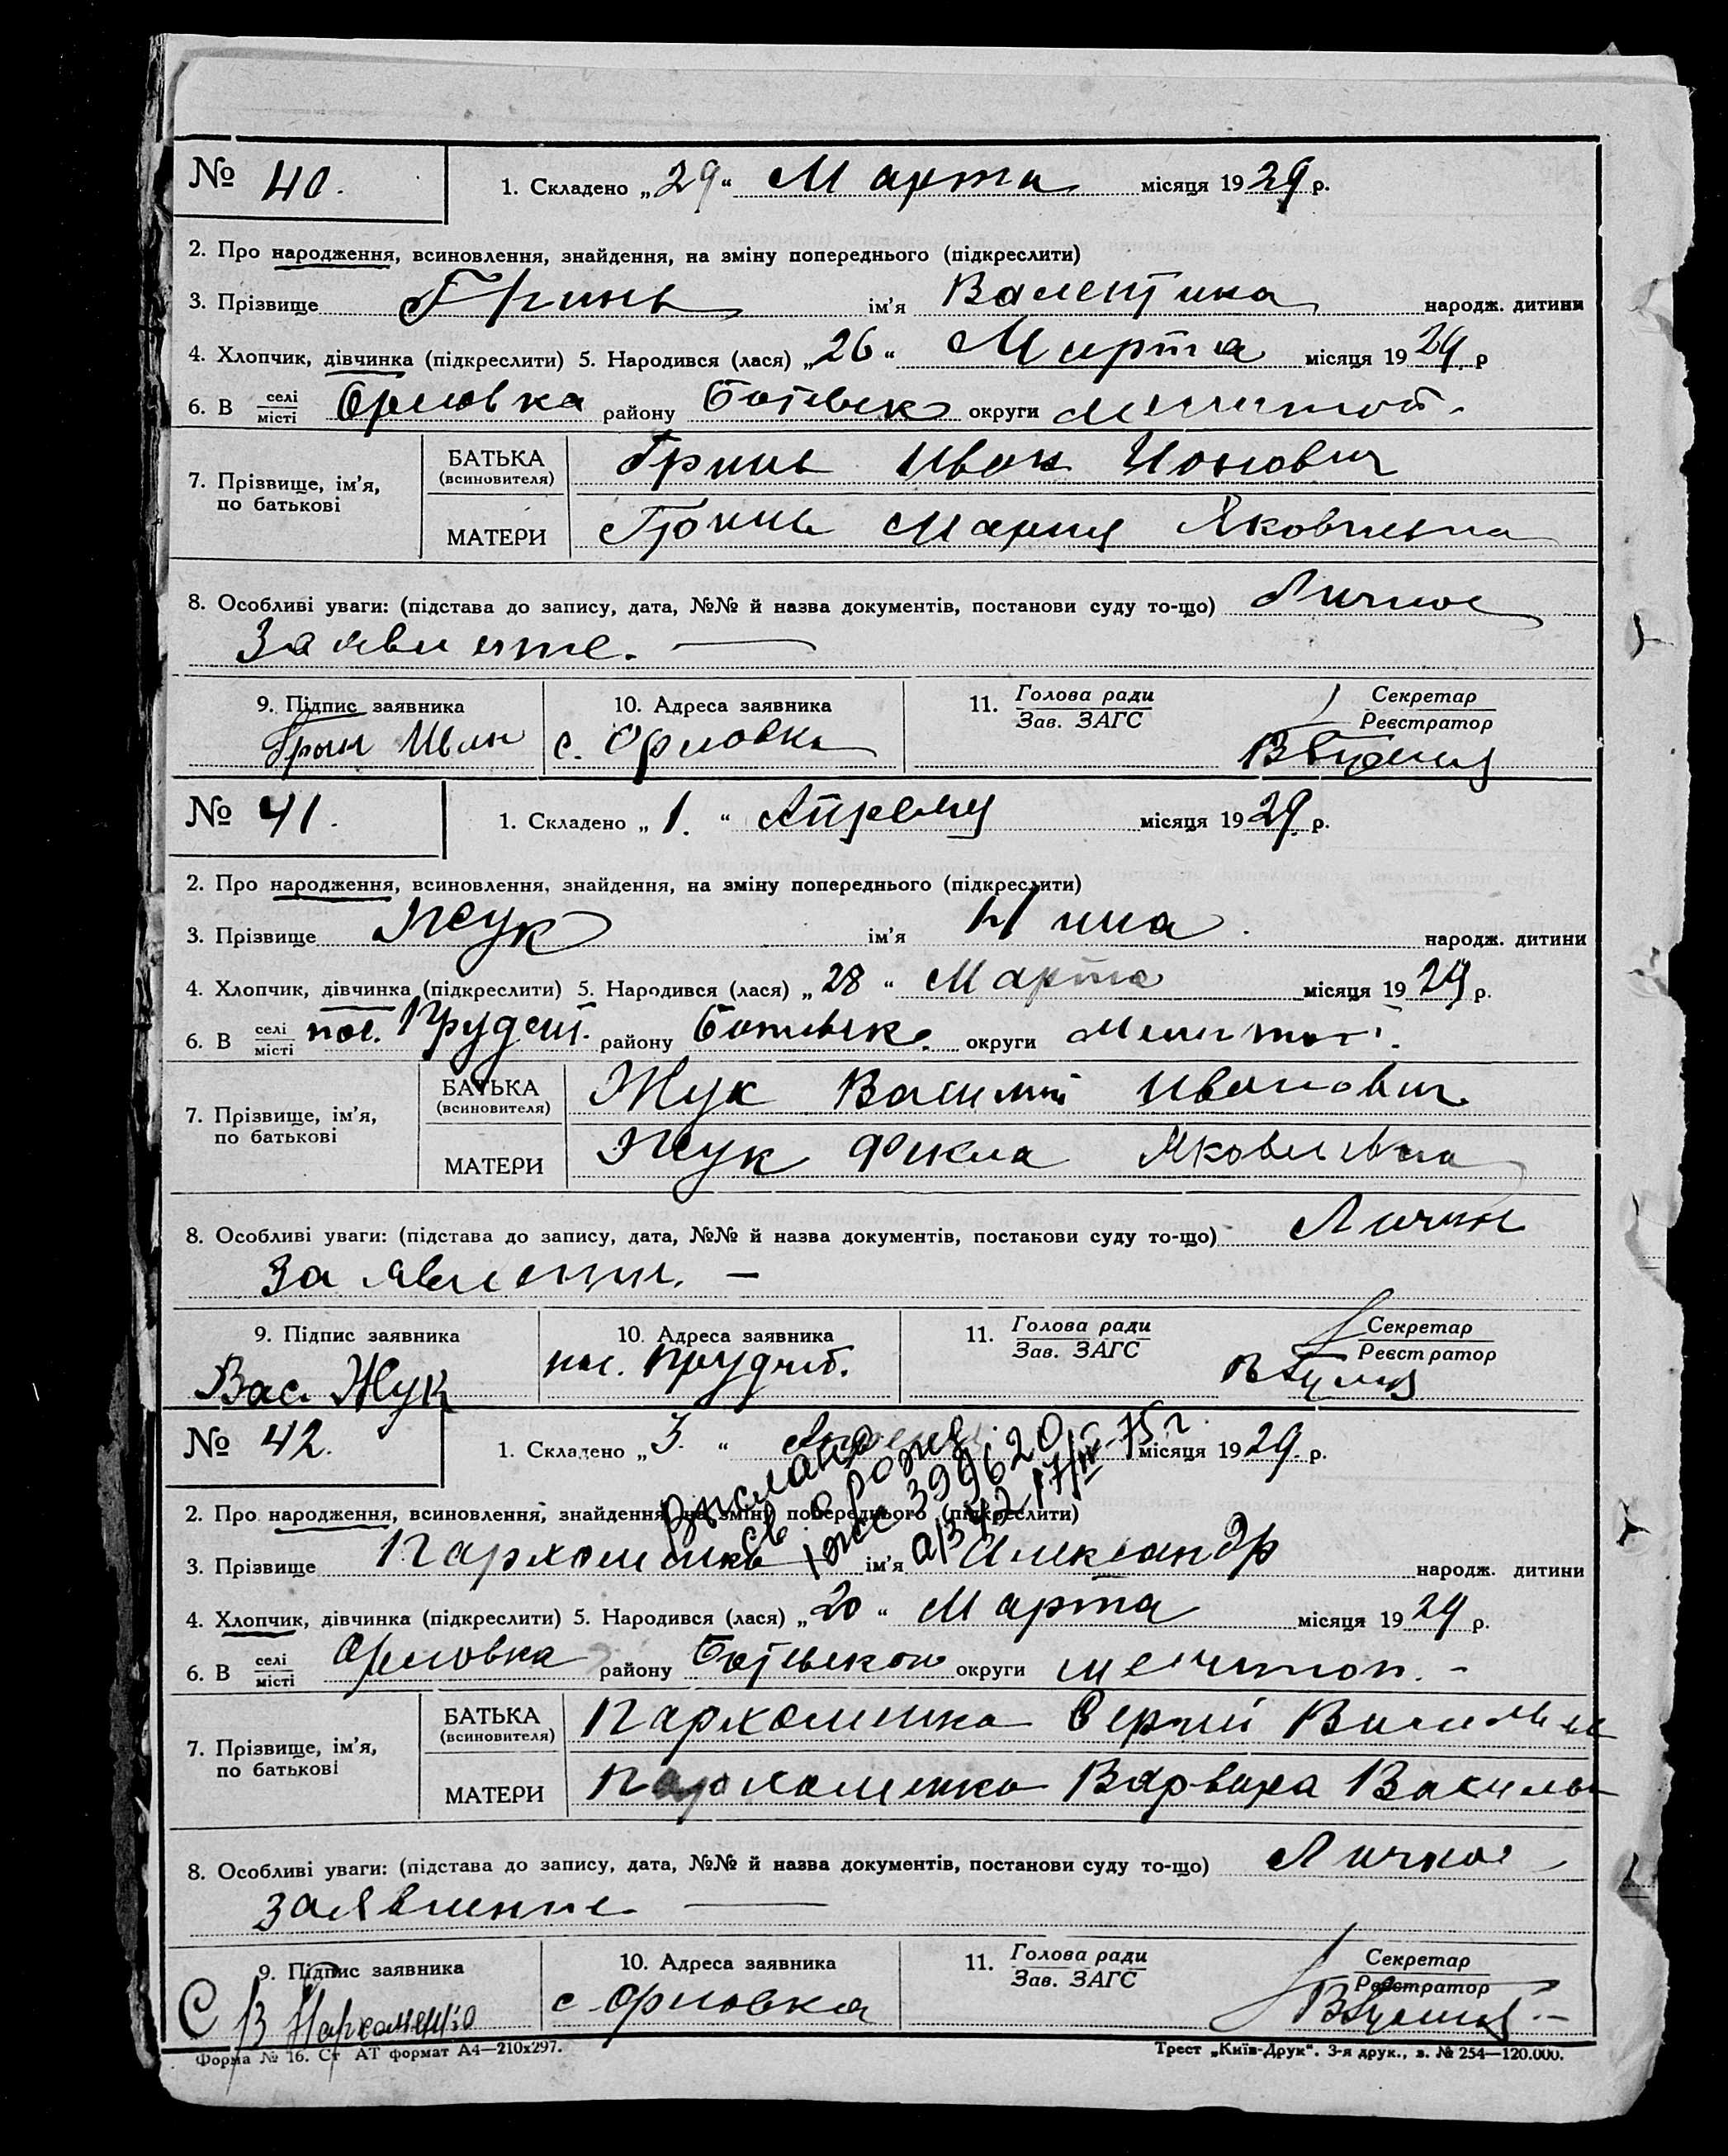 № 40. 1. Складено „29“ Марта місяця 1929 р.
2. Про народження, всиновлення, знайдення, на зміну попереднього (підкреслити)
3. Прізвище Гринь ім'я Валентина народж. дитини
4. Хлопчик, дівчинка (підкреслити) 5. Народився (лася) „26“ Марта місяця 1929 р
6. В селі місті Орловка району Ботьевск округи Мелитоп.
БАТЬКА (всиновителя) Гринь Иван Ионович
7. Прізвище, ім'я, по батькові
МАТЕРИ Гринь Мария Яковлевна
8. Особливі уваги: (підстава до запису, дата, №№ й назва документів, постанови суду то-що) Личное
Заявление.
9. Підпис заявника 10. Адреса заявника 11. Голова ради Зав. ЗАГС Секретар Реєстратор
Грын Иван с. Орловка
№ 41. 1. Складено „1.“ Апреля місяця 1929. р.
2. Про народження, всиновлення, знайдення, на зміну попереднього (підкреслити)
3. Прізвище Жук ім'я Нина народж. дитини
4. Хлопчик, дівчинка (підкреслити) 5. Народився (лася) „28“ Марта місяця 1929 р.
6. В селі місті пос. району Ботьевск. округи Мелитоп.
БАТЬКА (всиновителя) Жук Василий Иванович
7. Прізвище, ім'я, по батькові
МАТЕРИ Жук Фекла Яковлевна
8. Особливі уваги: (підстава до запису, дата, №№ й назва документів, постанови суду то-що) Личн
Заявление.
9. Підпис заявника 10. Адреса заявника 11. Голова ради Зав. ЗАГС Секретар Реєстратор
Вас. Жук пос.
№ 42. 1. Складено „3.“ Апреля місяця 1929. р.
Выслано
св о рожд
399620
17/IV-75 г.
2. Про народження, всиновлення, знайдення, на зміну попереднього (підкреслити)
3. Прізвище Пархоменко ім'я Александр народж. дитини
4. Хлопчик, дівчинка (підкреслити) 5. Народився (лася) „20“ Марта місяця 1929 р.
6. В селі місті Орловка району Ботьевском округи Мелитоп.
БАТЬКА (всиновителя) Пархоменко Сергий
7. Прізвище, ім'я, по батькові
МАТЕРИ Пархоменко Варвара Василь
8. Особливі уваги: (підстава до запису, дата, №№ й назва документів, постанови суду то-що) Личное
заявление.
9. Підпис заявника 10. Адреса заявника 11. Голова ради Зав. ЗАГС Секретар Реєстратор
С В Пархоменко с Орловка
Форма № 16. Ст АТ формат А4—210х297. Трест „Київ-Друк“. 3-я друк., з. № 254—120.000.